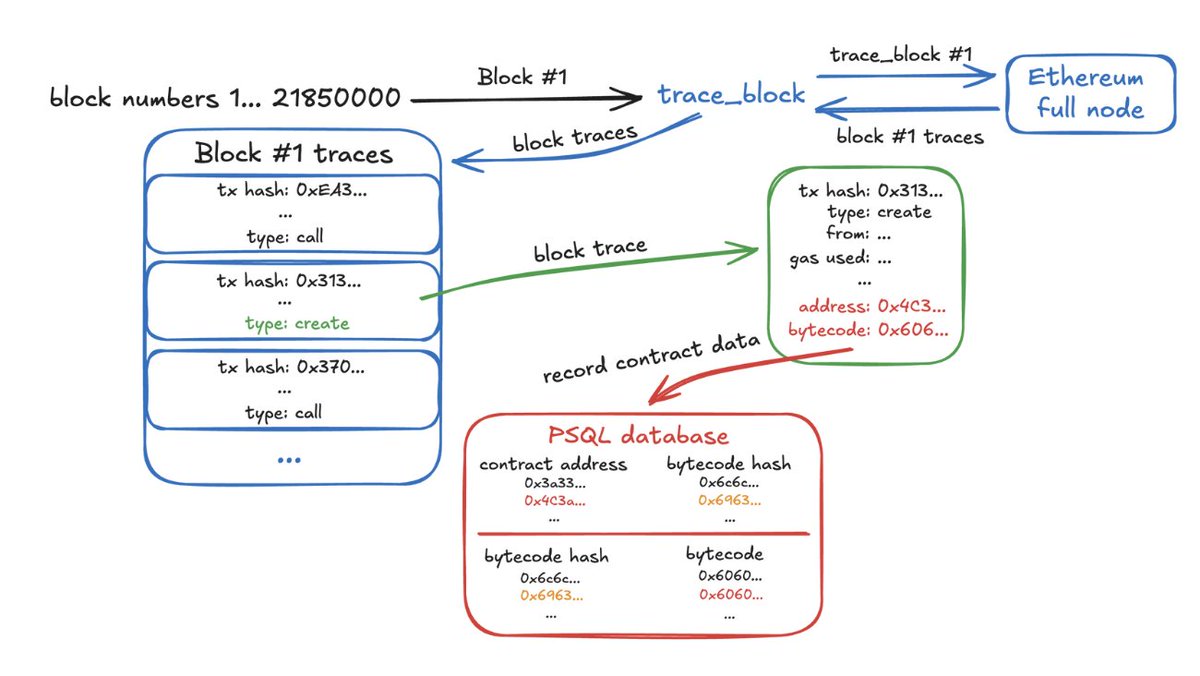 block numbers 1... 21850000
Block #1
trace_block
trace_block #1
Ethereum
full node
block #1 traces
block traces
Block #1 traces
tx hash: 0xEA3...
...
type: call
tx hash: 0x313...
...
type: create
tx hash: 0x370...
...
type: call
...
block trace
tx hash: 0x313...
type: create
from: ...
gas used: ...
...
address: 0x4C3...
bytecode: 0x606...
record contract data
PSQL database
contract address bytecode hash
0x3a33... 0x6c6c...
0x4C3a... 0x6963...
... ...
bytecode hash bytecode
0x6c6c... 0x6060...
0x6963... 0x6060...
... ...